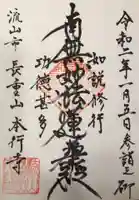 令和二年一月五日参詣之砌
如説修行
南無妙法蓮華経
功徳甚多
流山市長重山本行寺